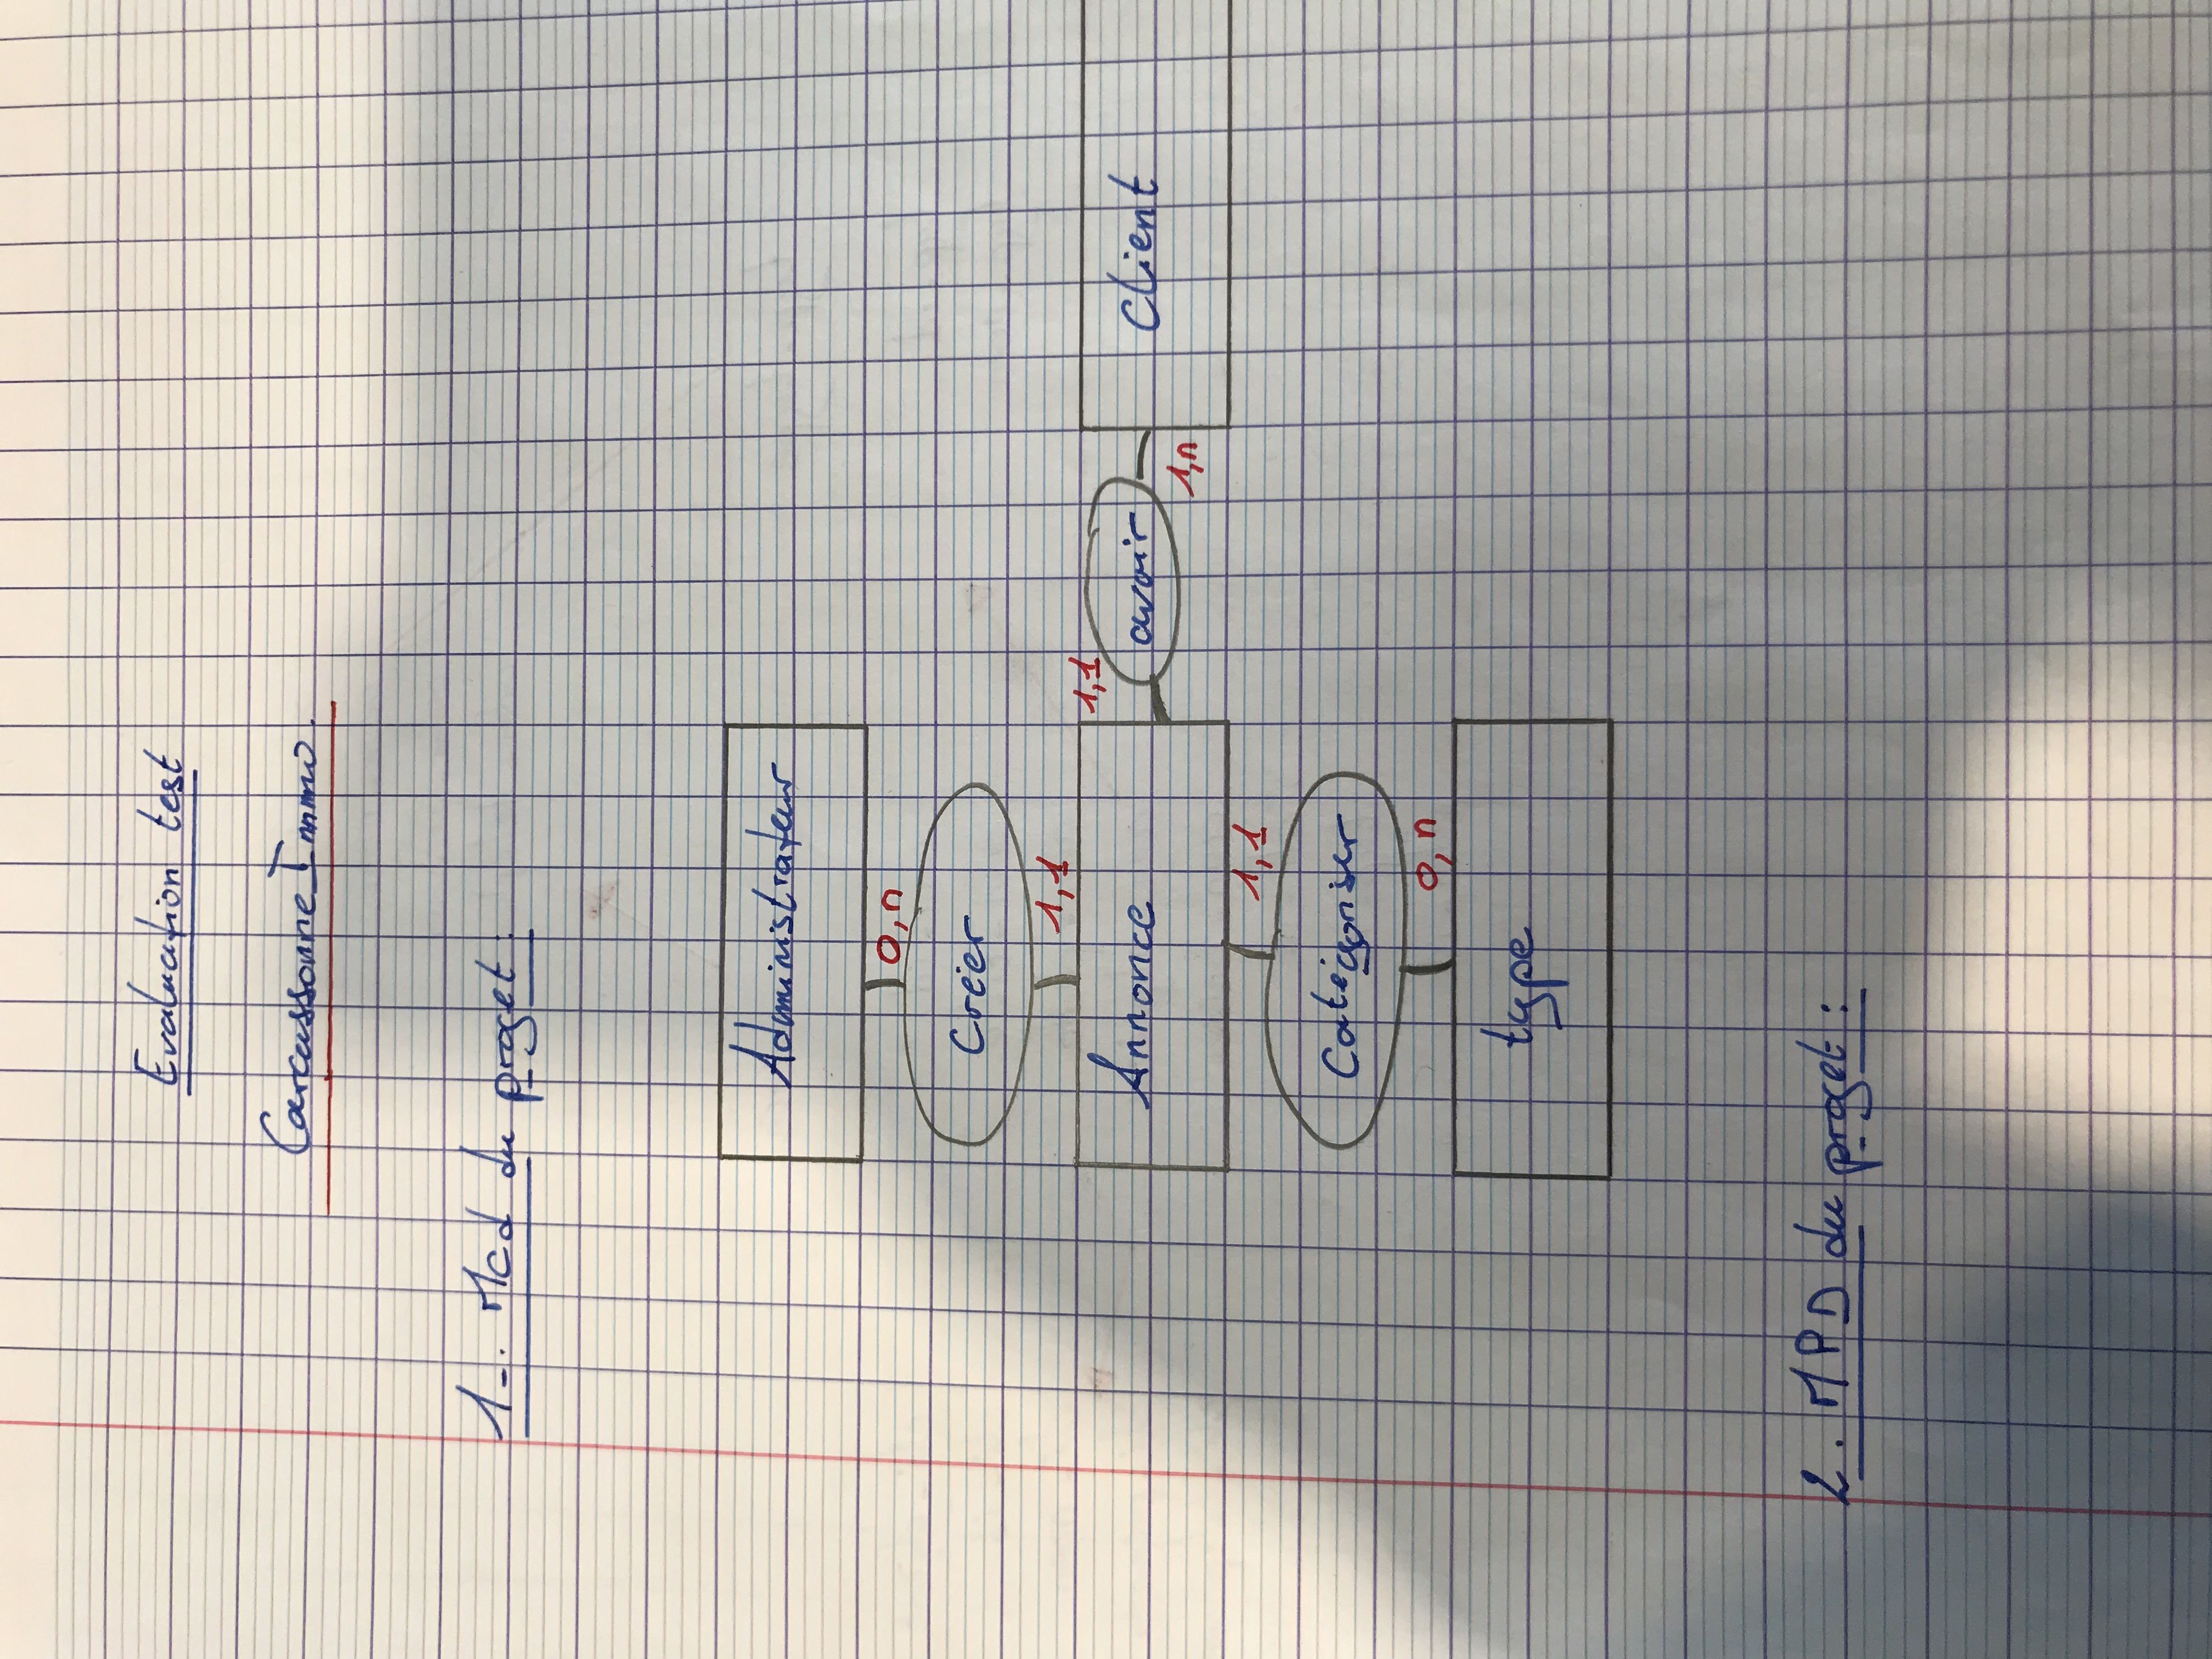 Evaluation test
Carcassonne Immo.
1-. Mcd du projet :
Administrateur
0,n
Créer
1,1
Annonce
1,1
avoir
1,n
Client
1,1
Catégoriser
0,n
type
2. MPD du projet :